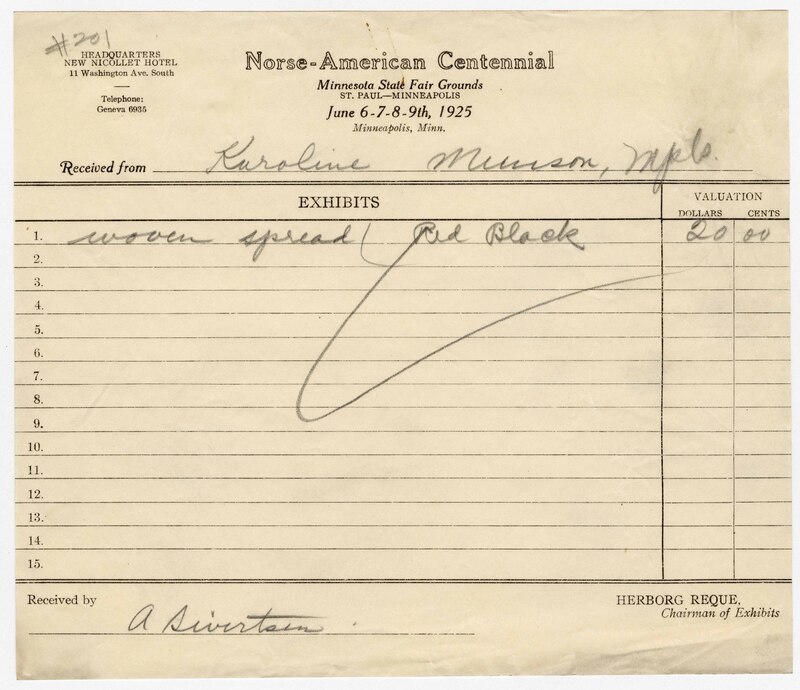 #201
HEADQUARTERS
NEW NICOLLET HOTEL
11 Washington Ave. South
Telephone:
Geneva 6935
Norse-American Centennial
Minnesota State Fair Grounds
ST. PAUL—MINNEAPOLIS
June 6-7-8-9th, 1925
Minneapolis, Minn.
Received from Karoline Munson, Mpls.
EXHIBITS VALUATION
DOLLARS CENTS
1. woven spread ( Red Black 20 00
2.
3.
4.
5.
6.
7.
8.
9.
10.
11.
12.
13.
14.
15.
Received by A Sivertsen
HERBORG REQUE,
Chairman of Exhibits